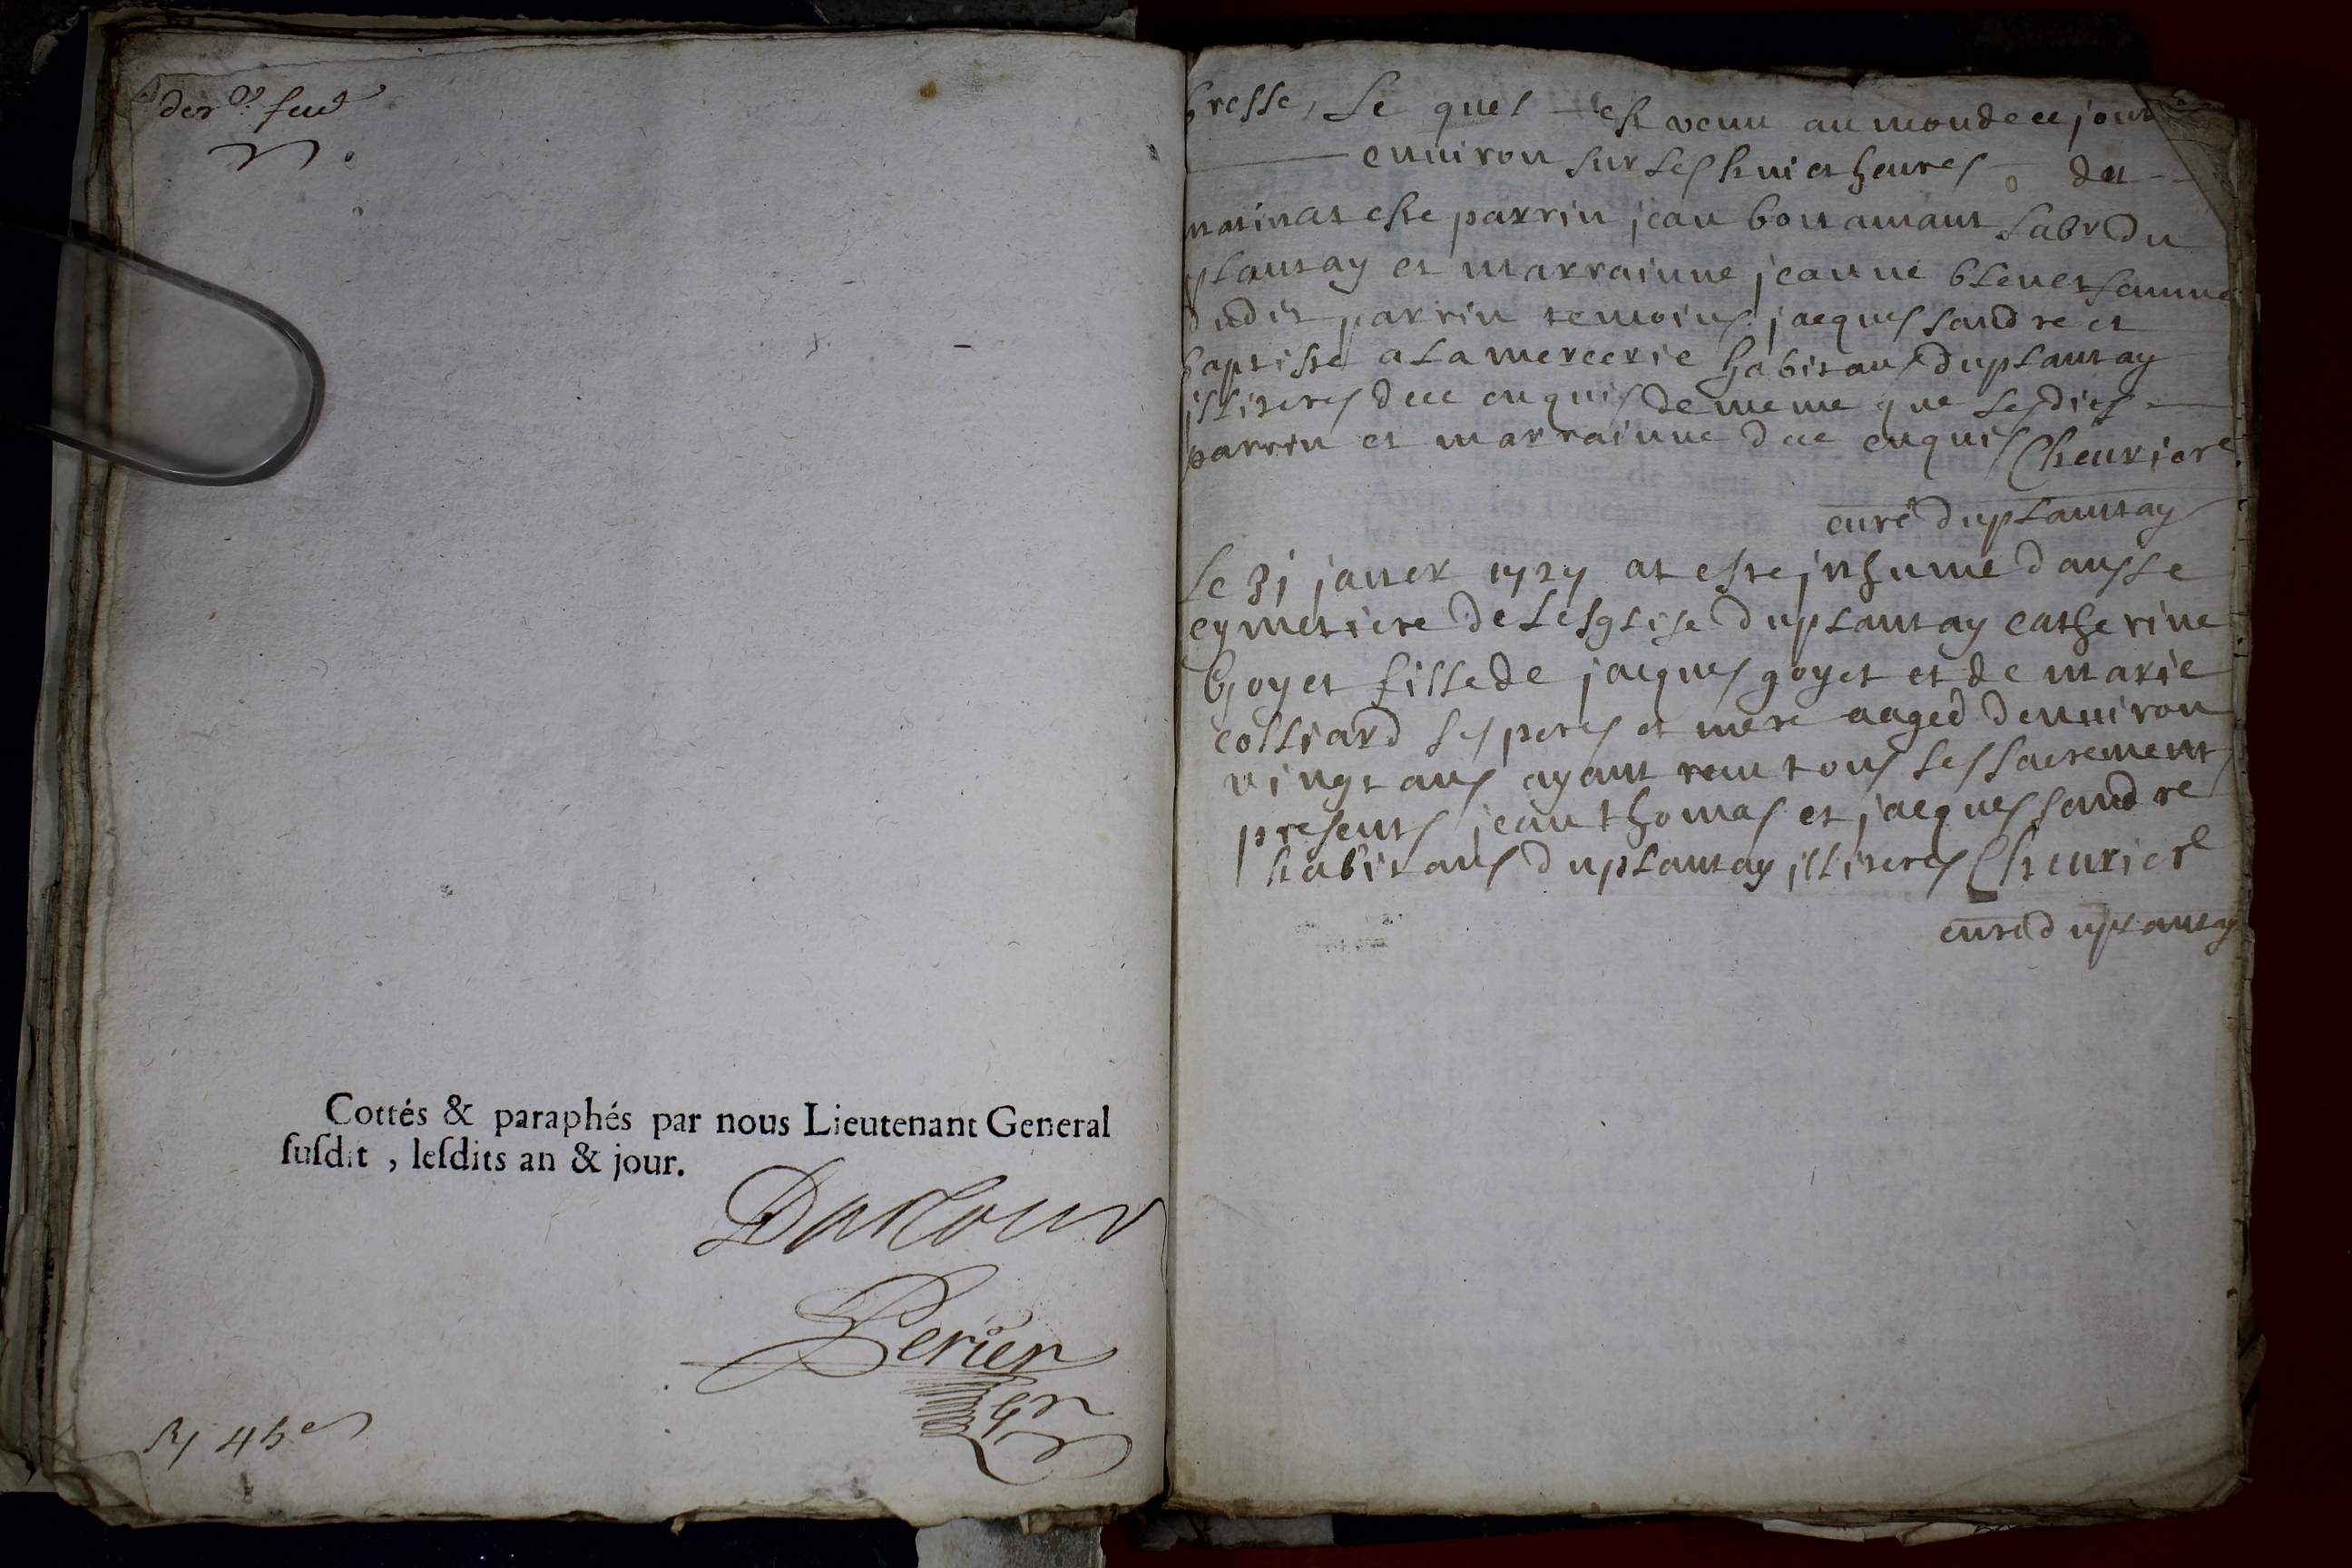 der.
Cottés & paraphés par nous Lieutenant General
ſuſdit , leſdits an & jour.
Perier
bresse, Le quel est venu au monde ce jour
enuiron sur les huict heures du
matin at este parrin jean bonamant Labr du
plantay et marrainne jeanne bleuet femme
dudit parrin temoins jacques sandre et
baptiste a La mercerie habitans du plantay
illiteres dee enquis de meme que Lesdits
parrin et marrainne dee enquis Cheuriere
curé du plantay
Le 31 januer 1727 at este jnhume dans Le
cymetiere de Lesglise du plantay catherine
Goyet fille de jacques goyet et de marie
colliard ses peres et mere aaged denuiron
vingt ans ayant receu tous les sacrement
presents jean thomas et jacques sandre
habitans du plantay jlliteres Cheuriere
curé du plantay